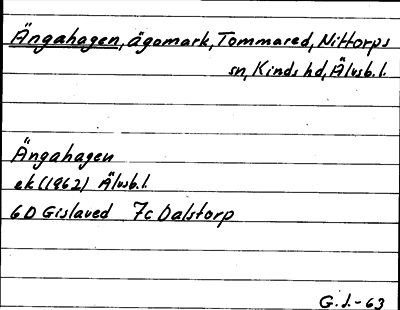 Ängahagen, ägomark, Tommared, Nittorps
sn, Kinds hd, Älvsb.l.
Ängahagen
ek (1962) Älvsb.l.
6D Gislaved 7c Dalstorp
G.J.-63